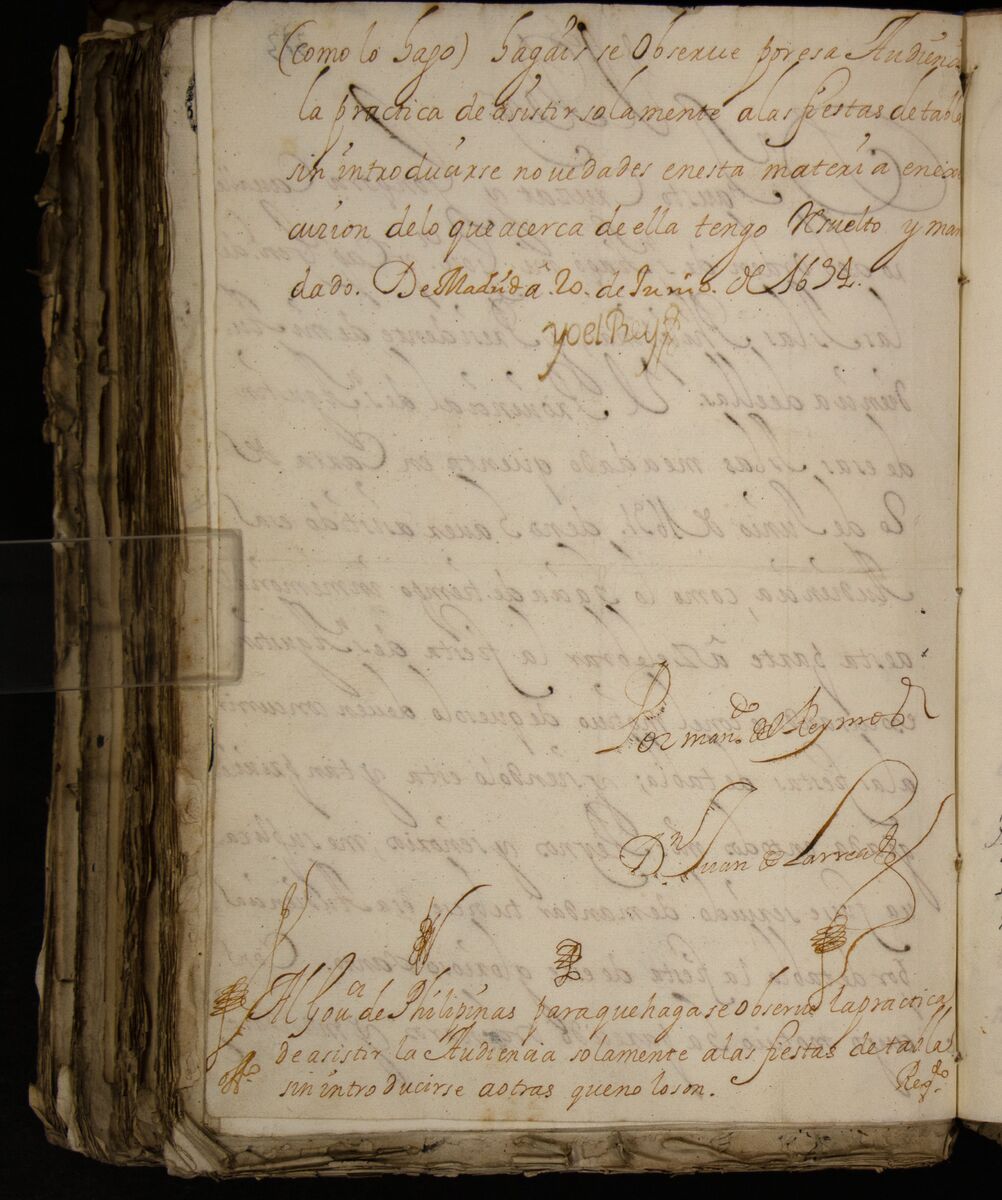 (como lo hago) hagáis se observe por esa Audiencia
la practica de asistir solamente a las fiestas de tabla
sin introducirse novedades en esta materia en exe
cuzion de lo que acerca de ella tengo Resuelto y man
dado. De Madrid a 20. de Junio. de 1694.
yo el Rey
Por mando. del Rey nro s.r
Dn. Juan de Larrea
Al Gou.or de Philipinas para que haga se observe la practica
de asistir la Audiencia solamente a las fiestas de tabla
sin introducirse a otras que no lo son.
Reg.do